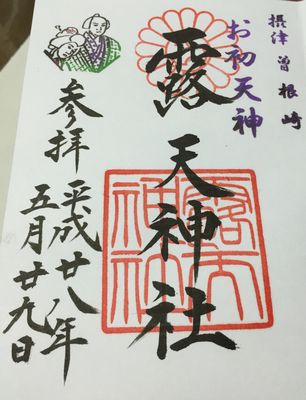 摂津曽根崎
お初天神
露天神社
参拝
平成廿八年
五月廿九日
露天
神社